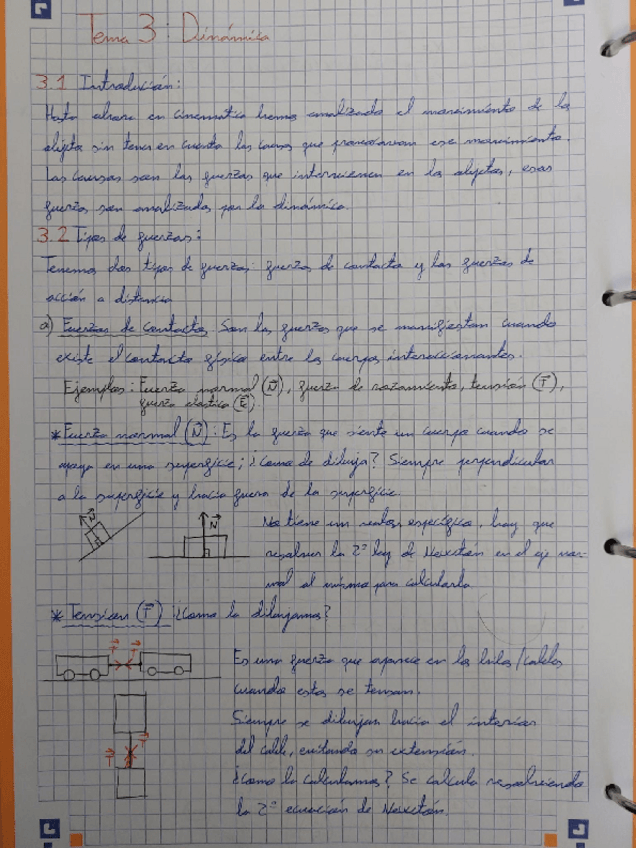 Tema 3: Dinámica
3.1 Introducción:
Hasta ahora en cinematica hemos analizado el movimiento de los
objetos sin tener en cuenta las causas que provocavan ese movimiento.
Las causas son las fuerzas que intervienen en los objetos, esas
fuerzas son analizadas por la dinámica.
3.2 Tipos de fuerzas:
Tenemos dos tipos de fuerzas: fuerzas de contacto y las fuerzas de
acción a distancia
a) Fuerzas de Contacto. Son las fuerzas que se manifiestan cuando
existe el contacto físico entre los cuerpos interaccionantes.
Ejemplos: Fuerza normal (N), fuerza de rozamiento, tensión (T),
fuerza elástica (Fe).
* Fuerza normal (N): Es la fuerza que siente un cuerpo cuando se
apoya en una superficie; ¿Como de dibuja? Siempre perpendicular
a la superficie y hacia fuera de la superficie.
N
N
No tiene un valor específico, hay que
resolver la 2ª ley de Newton en el eje nor-
mal al mismo para calcularla.
* Tension (T) ¿Como la dibujamos?
T T
Es una fuerza que aparece en los hilos/cables
cuando estos se tensan.
Siempre se dibujan hacia el interior
T
T
del cable, evitando su extensión.
¿Como la calculamos? Se calcula resolviendo
la 2ª ecuación de Newton.